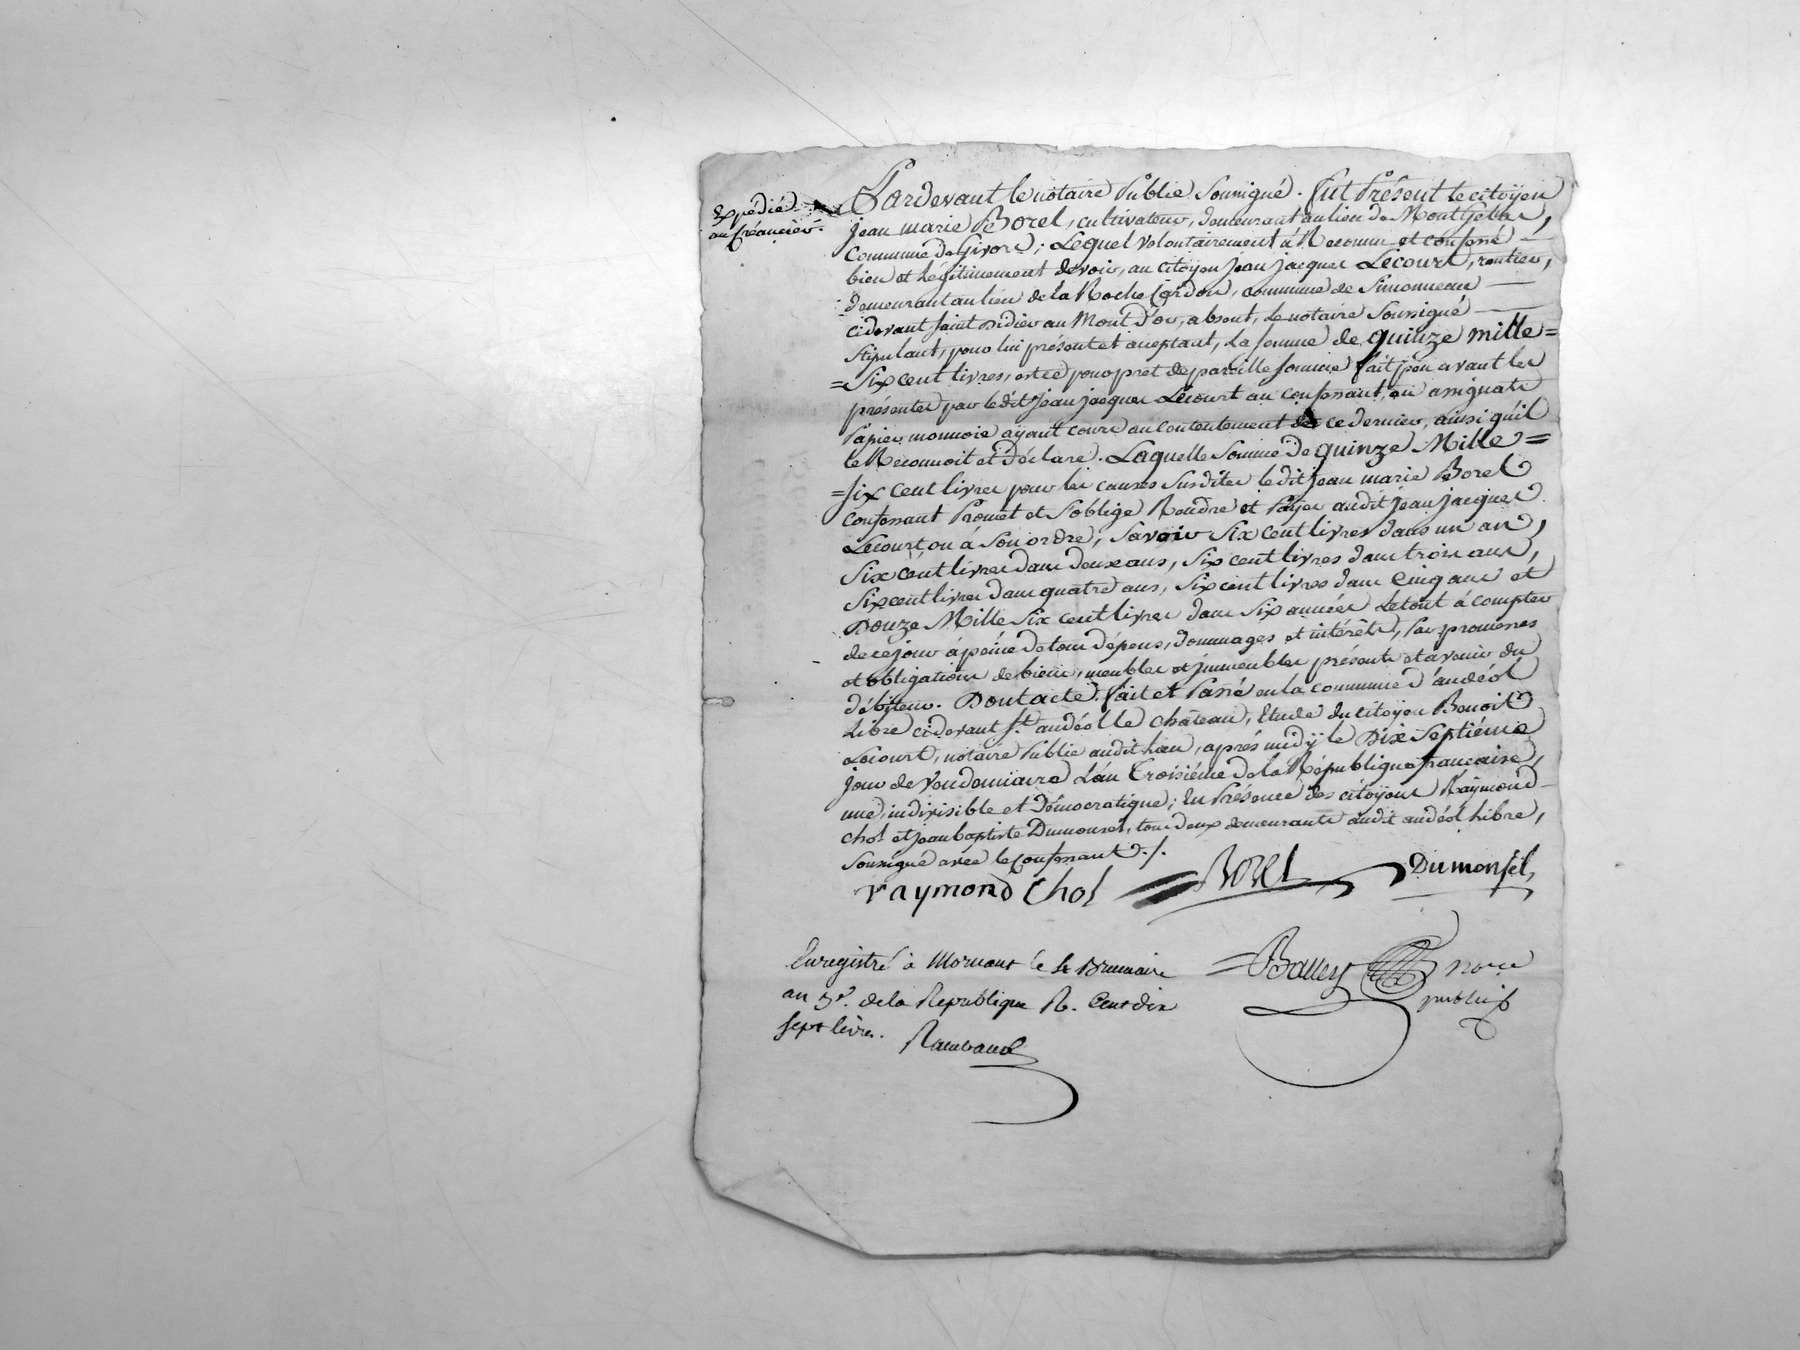 Expédié
au créancier.
Pardevant le notaire Public Soussigné. Fut Présent le citoyen
Jean marie Borel, cultivateur, demeurant au lieu de Montgelas,
Commune de Givors; Lequel volontairement à Reconnu et confessé —
bien et Légitimement devoir, au citoyen Jean jacques Lecourt, rentier,
demeurant au lieu de la Roche Cardon, commune de Simonneau —
cidevant saint Didier au Mont D'or, absent, le notaire Soussigné —
stipulant, pour lui présent et aceptant, La somme de quinze mille =
= Six cent livres, et ce pour pret de pareille somme fait peu avant les
présentes par ledit Jean jacques Lecourt au confessant, en assignats
Papier monnoie ayant cours au contentement de ce dernier, ainsi qu'il
le Reconnoit et Déclare. Laquelle Somme de quinze Mille =
= six cent livres pour les causes Susdites ledit Jean marie Borel
confessant Promet et S'oblige Rendre et Payer audit Jean Jacques
Lecourt ou à Son ordre, Savoir Six cent livres dans un an,
Six cent livres dans deux ans, Six cent livres dans trois ans,
Six cent livres dans quatre ans, Six cent livres dans Cinq ans et
Douze Mille Six cent livres dans Six années Le tout à compter
de ce jour à peine de tous dépens, dommages et intérêts, Par promesses
et obligations de biens, meubles et jmmeubles présents et avenir du
débiteur. Dont acte. Fait et Passé en la commune d'andéol
Libre cidevant St. andéol le château, Etude du citoyen Benoit
Lecourt, notaire Public audit lieu, après midy le Dix Septième
jour de Vendemiaire L'an Troisième de la République française,
une, indivisible et Démocratique; En Présence des citoyens Raymond
Chol et Jean baptiste Dumonsel, tous deux demeurants audit andéol Libre,
Soussigné avec le confessant ./.
raymond Chol Borel Dumonsel,
Enregistré à Mornant le 4 Brumaire
an 3e. de la République R. Cent dix
sept livres.
public